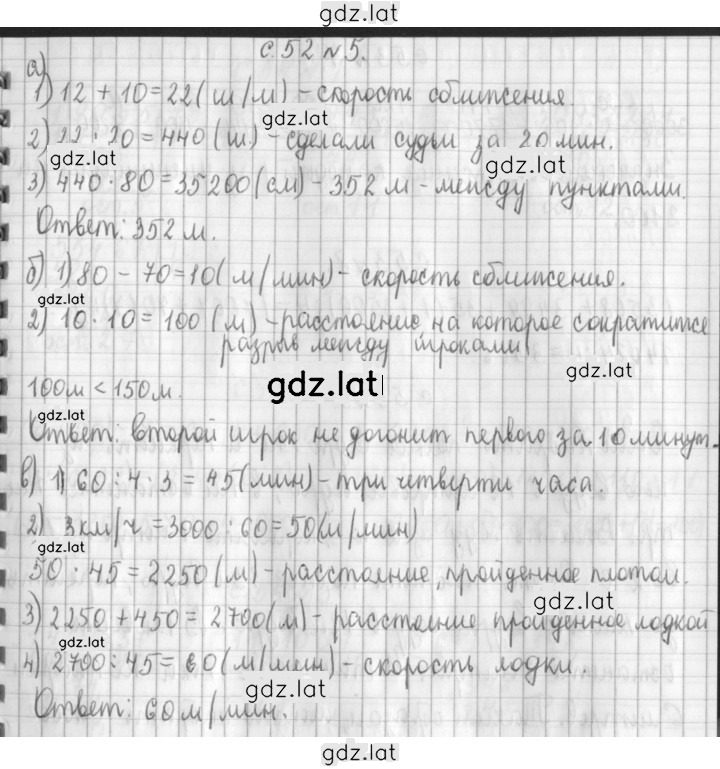 gdz.lat
с. 52 № 5.
а)
1) 12 + 10 = 22 (ш/м) - скорость сближения.
2) 22 · 20 = 440 (ш) - сделали судьи за 20 мин.
gdz.lat
gdz.lat
3) 440 · 80 = 35200 (см) - 352 м - между пунктами.
Ответ: 352 м.
б) 1) 80 - 70 = 10 (м/мин) - скорость сближения.
gdz.lat
2) 10 · 10 = 100 (м) - расстояние на которое сократится
разрыв между игроками
gdz.lat
gdz.lat
100м < 150м.
gdz.lat
Ответ: второй игрок не догонит первого за 10 минут.
в) 1) 60 : 4 · 3 = 45 (мин) - три четверти часа.
2) 3 км/ч = 3000 : 60 = 50 (м/мин)
gdz.lat
50 · 45 = 2250 (м) - расстояние, пройденное плотом.
gdz.lat
3) 2250 + 450 = 2700 (м) - расстояние пройденное лодкой
gdz.lat
4) 2700 : 45 = 60 (м/мин) - скорость лодки.
gdz.lat
Ответ: 60 м/мин.
gdz.lat